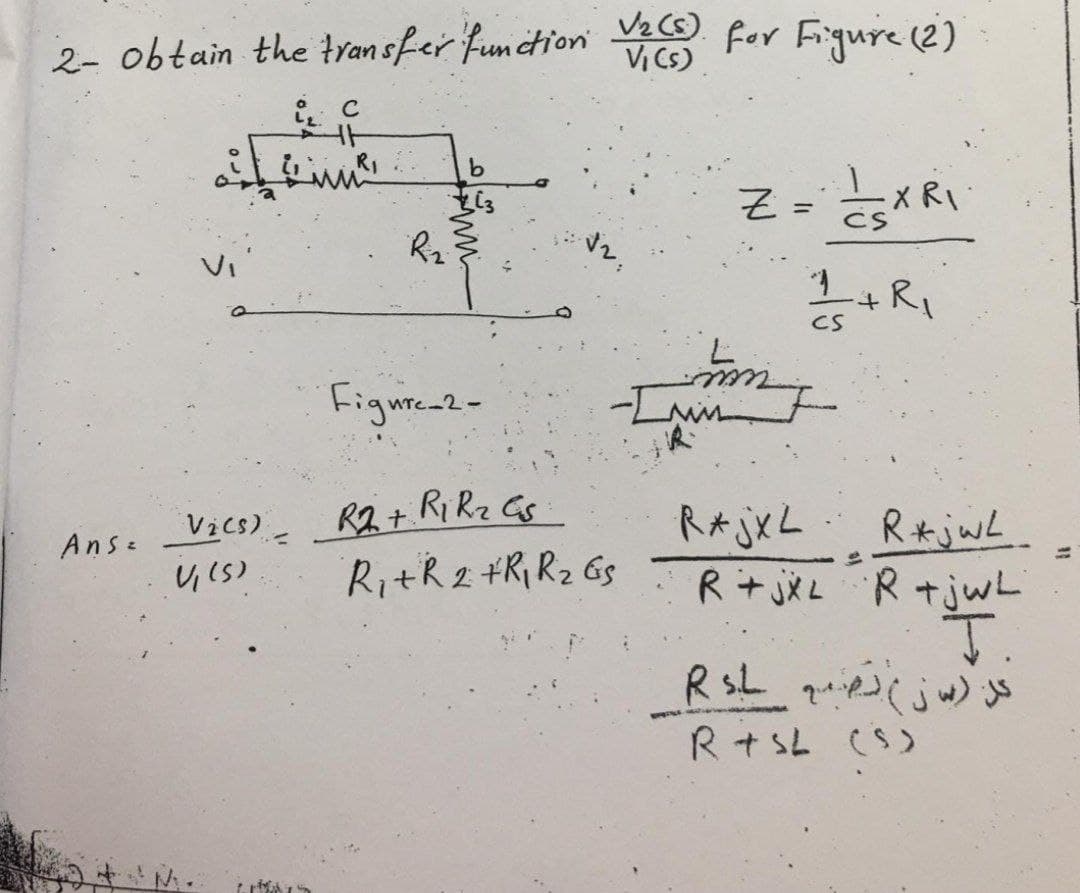 2- Obtain the transfer function V2(s)/V1(s) for Figure (2)
i2 C
i i1 R1 b
a
i3
R2
V1 V2
Z = 1/CS × R1
1/CS + R1
L
R
Figure-2-
Ans: V2(s)/V1(s) = R2 + R1 R2 CS / R1 + R2 + R1 R2 CS
R*jXL / R + jXL = R*jwL / R + jwL =
RsL / R + sL
كل (jw)
(s)